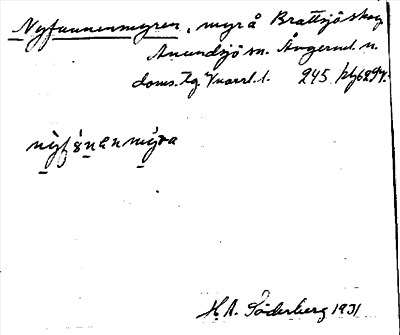 Nyfannenmyren, myr å Brattsjöskog
Anundsjö sn. Ångerml. n.
doms. Tg. Kvarrl. l. 245
nyfånenmýra
H. A. Söderberg 1931